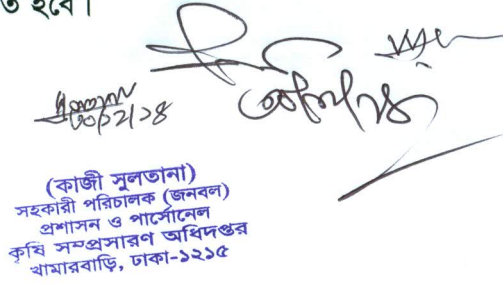 ত হবে।
৩০/১২/১৪
(কাজী সুলতানা)
সহকারী পরিচালক (জনবল)
প্রশাসন ও পার্সোনেল
কৃষি সম্প্রসারণ অধিদপ্তর
খামারবাড়ি, ঢাকা-১২১৫